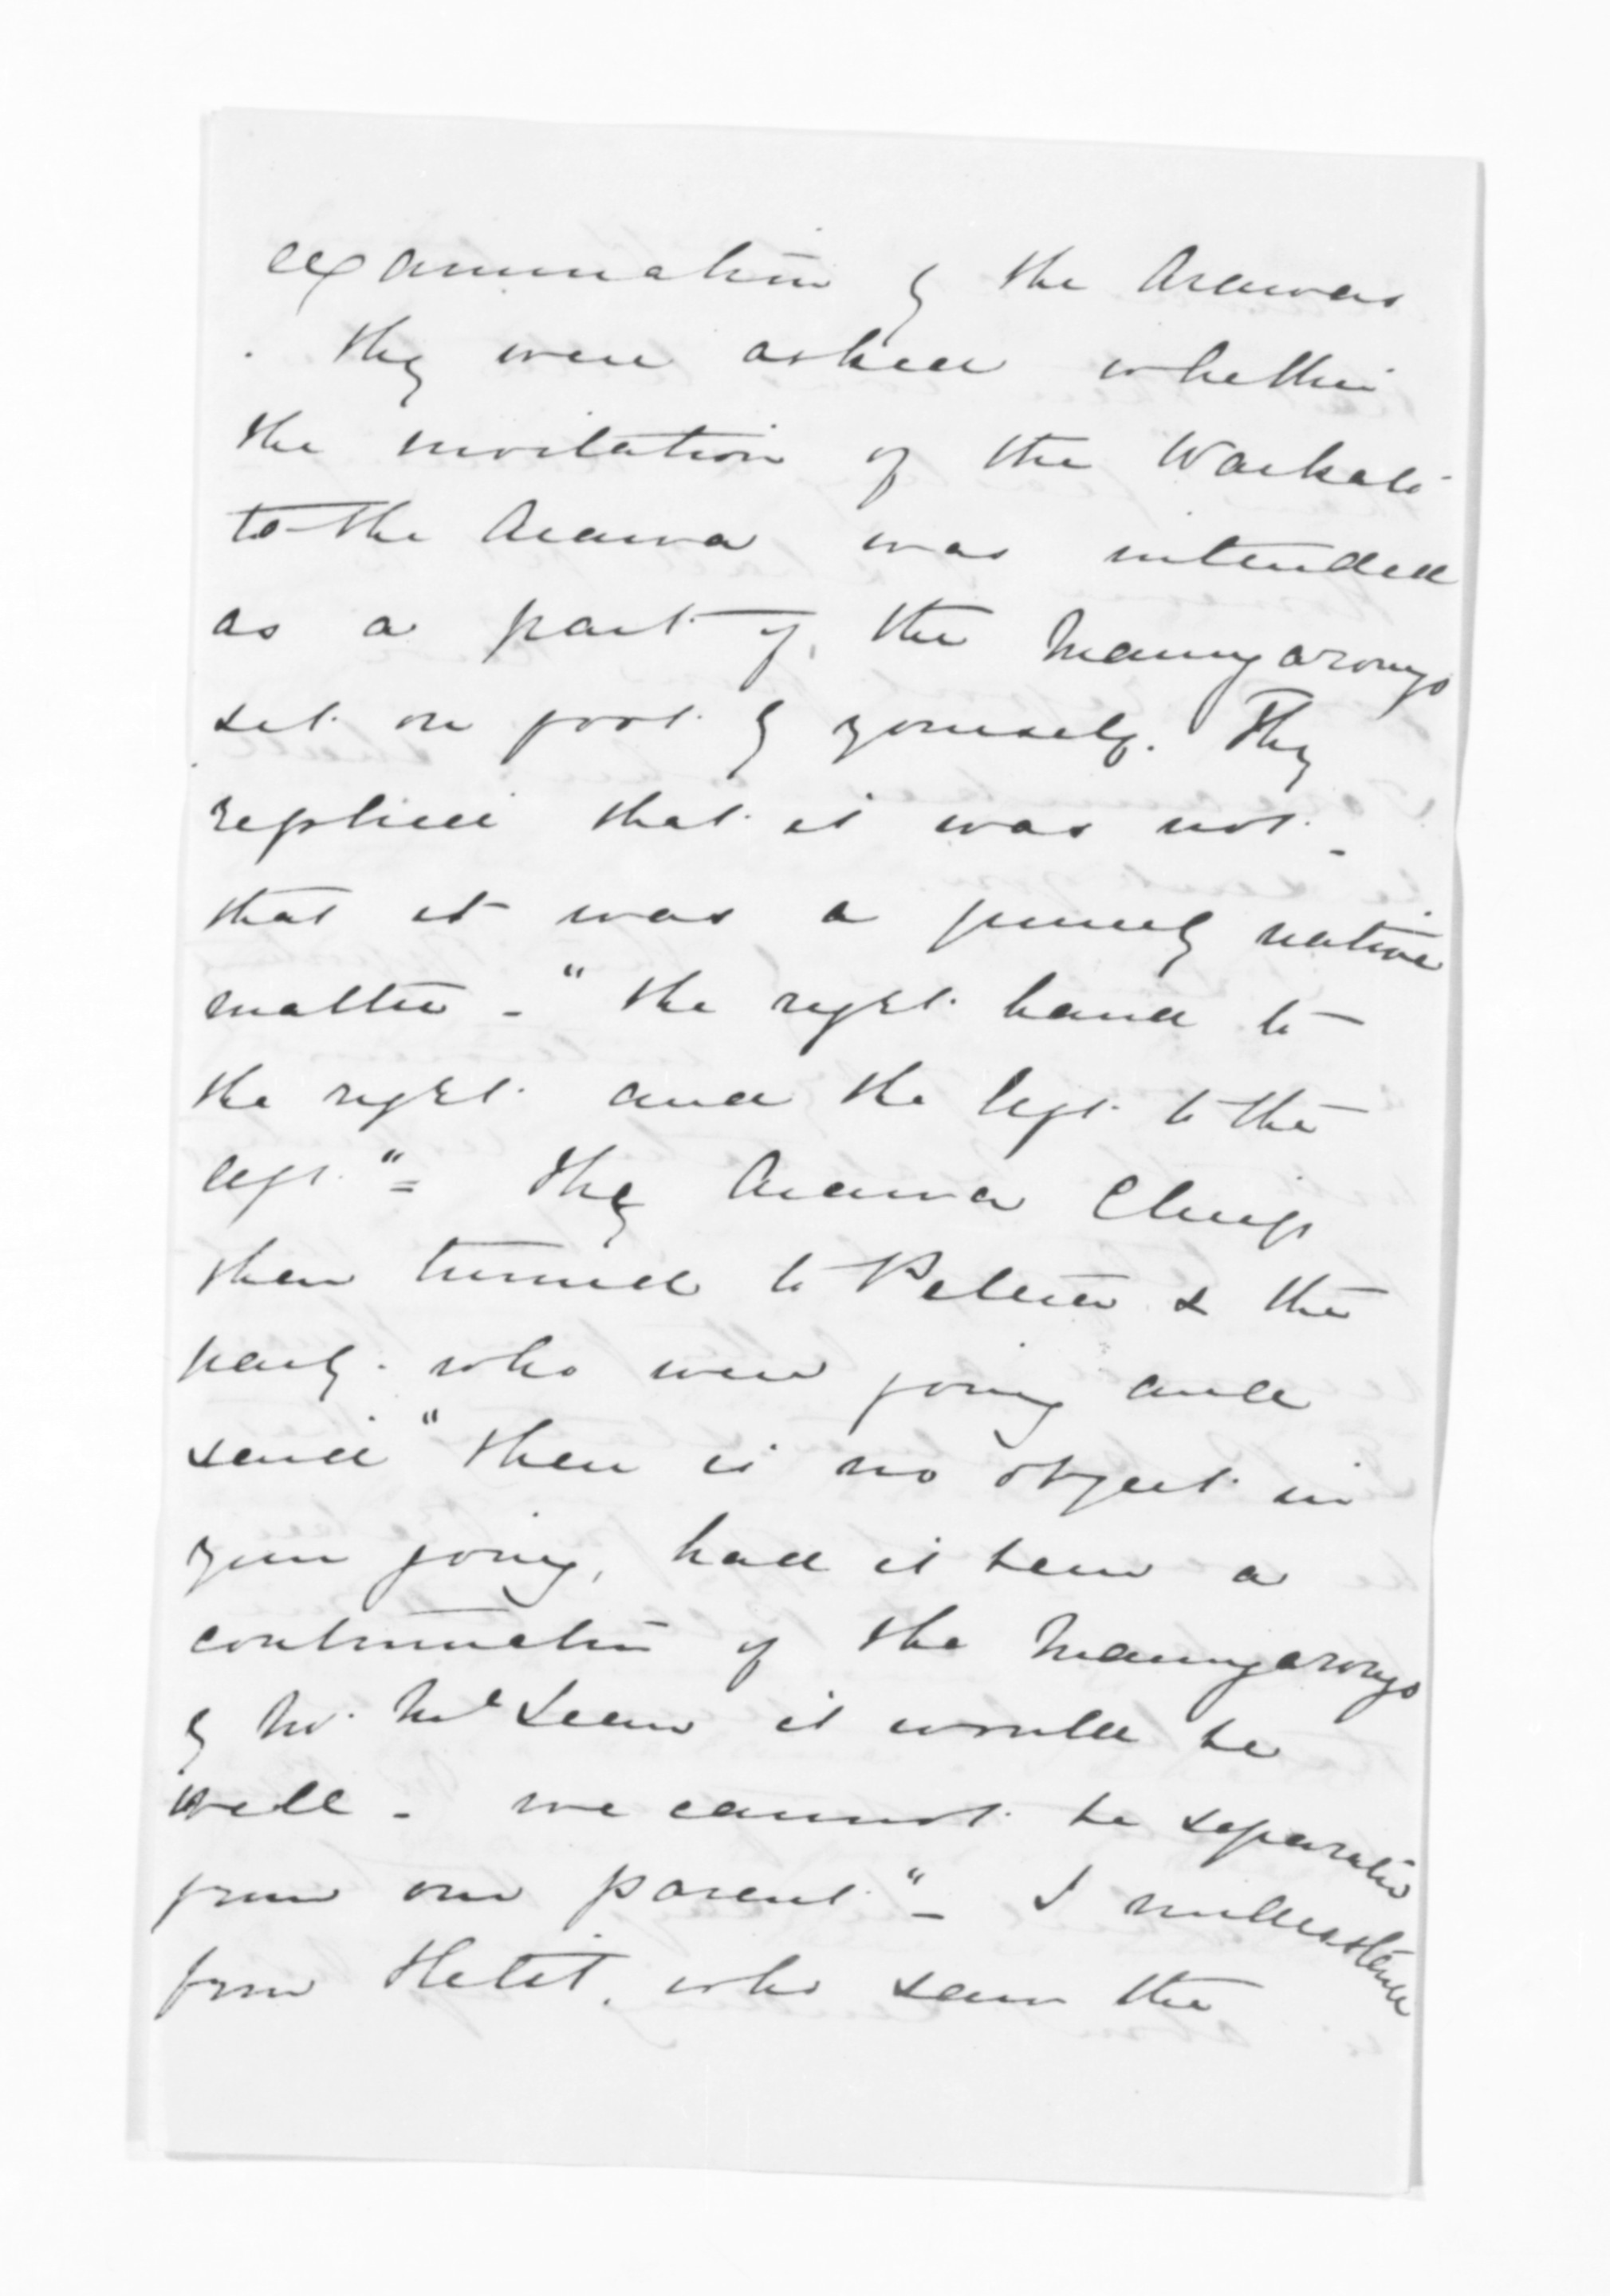 examination by the Arawas
. they were asked whether
the invitation of the Waikato
to the Arawa was intended
as a part of, the Maungarongo
set on foot by yourself. They
replied that it was not -
that it was a purely native
matter - "the right hand to
the right and the left to the
left." = The Arawa Chiefs
then turned to & the
party. who were going and
said "there is no object in
your going, had it been a
continuation of the Maungarongo
by Mr. McLean it would be
well - we cannot be separated
from our parent." - I understand
from Hetit, who saw the